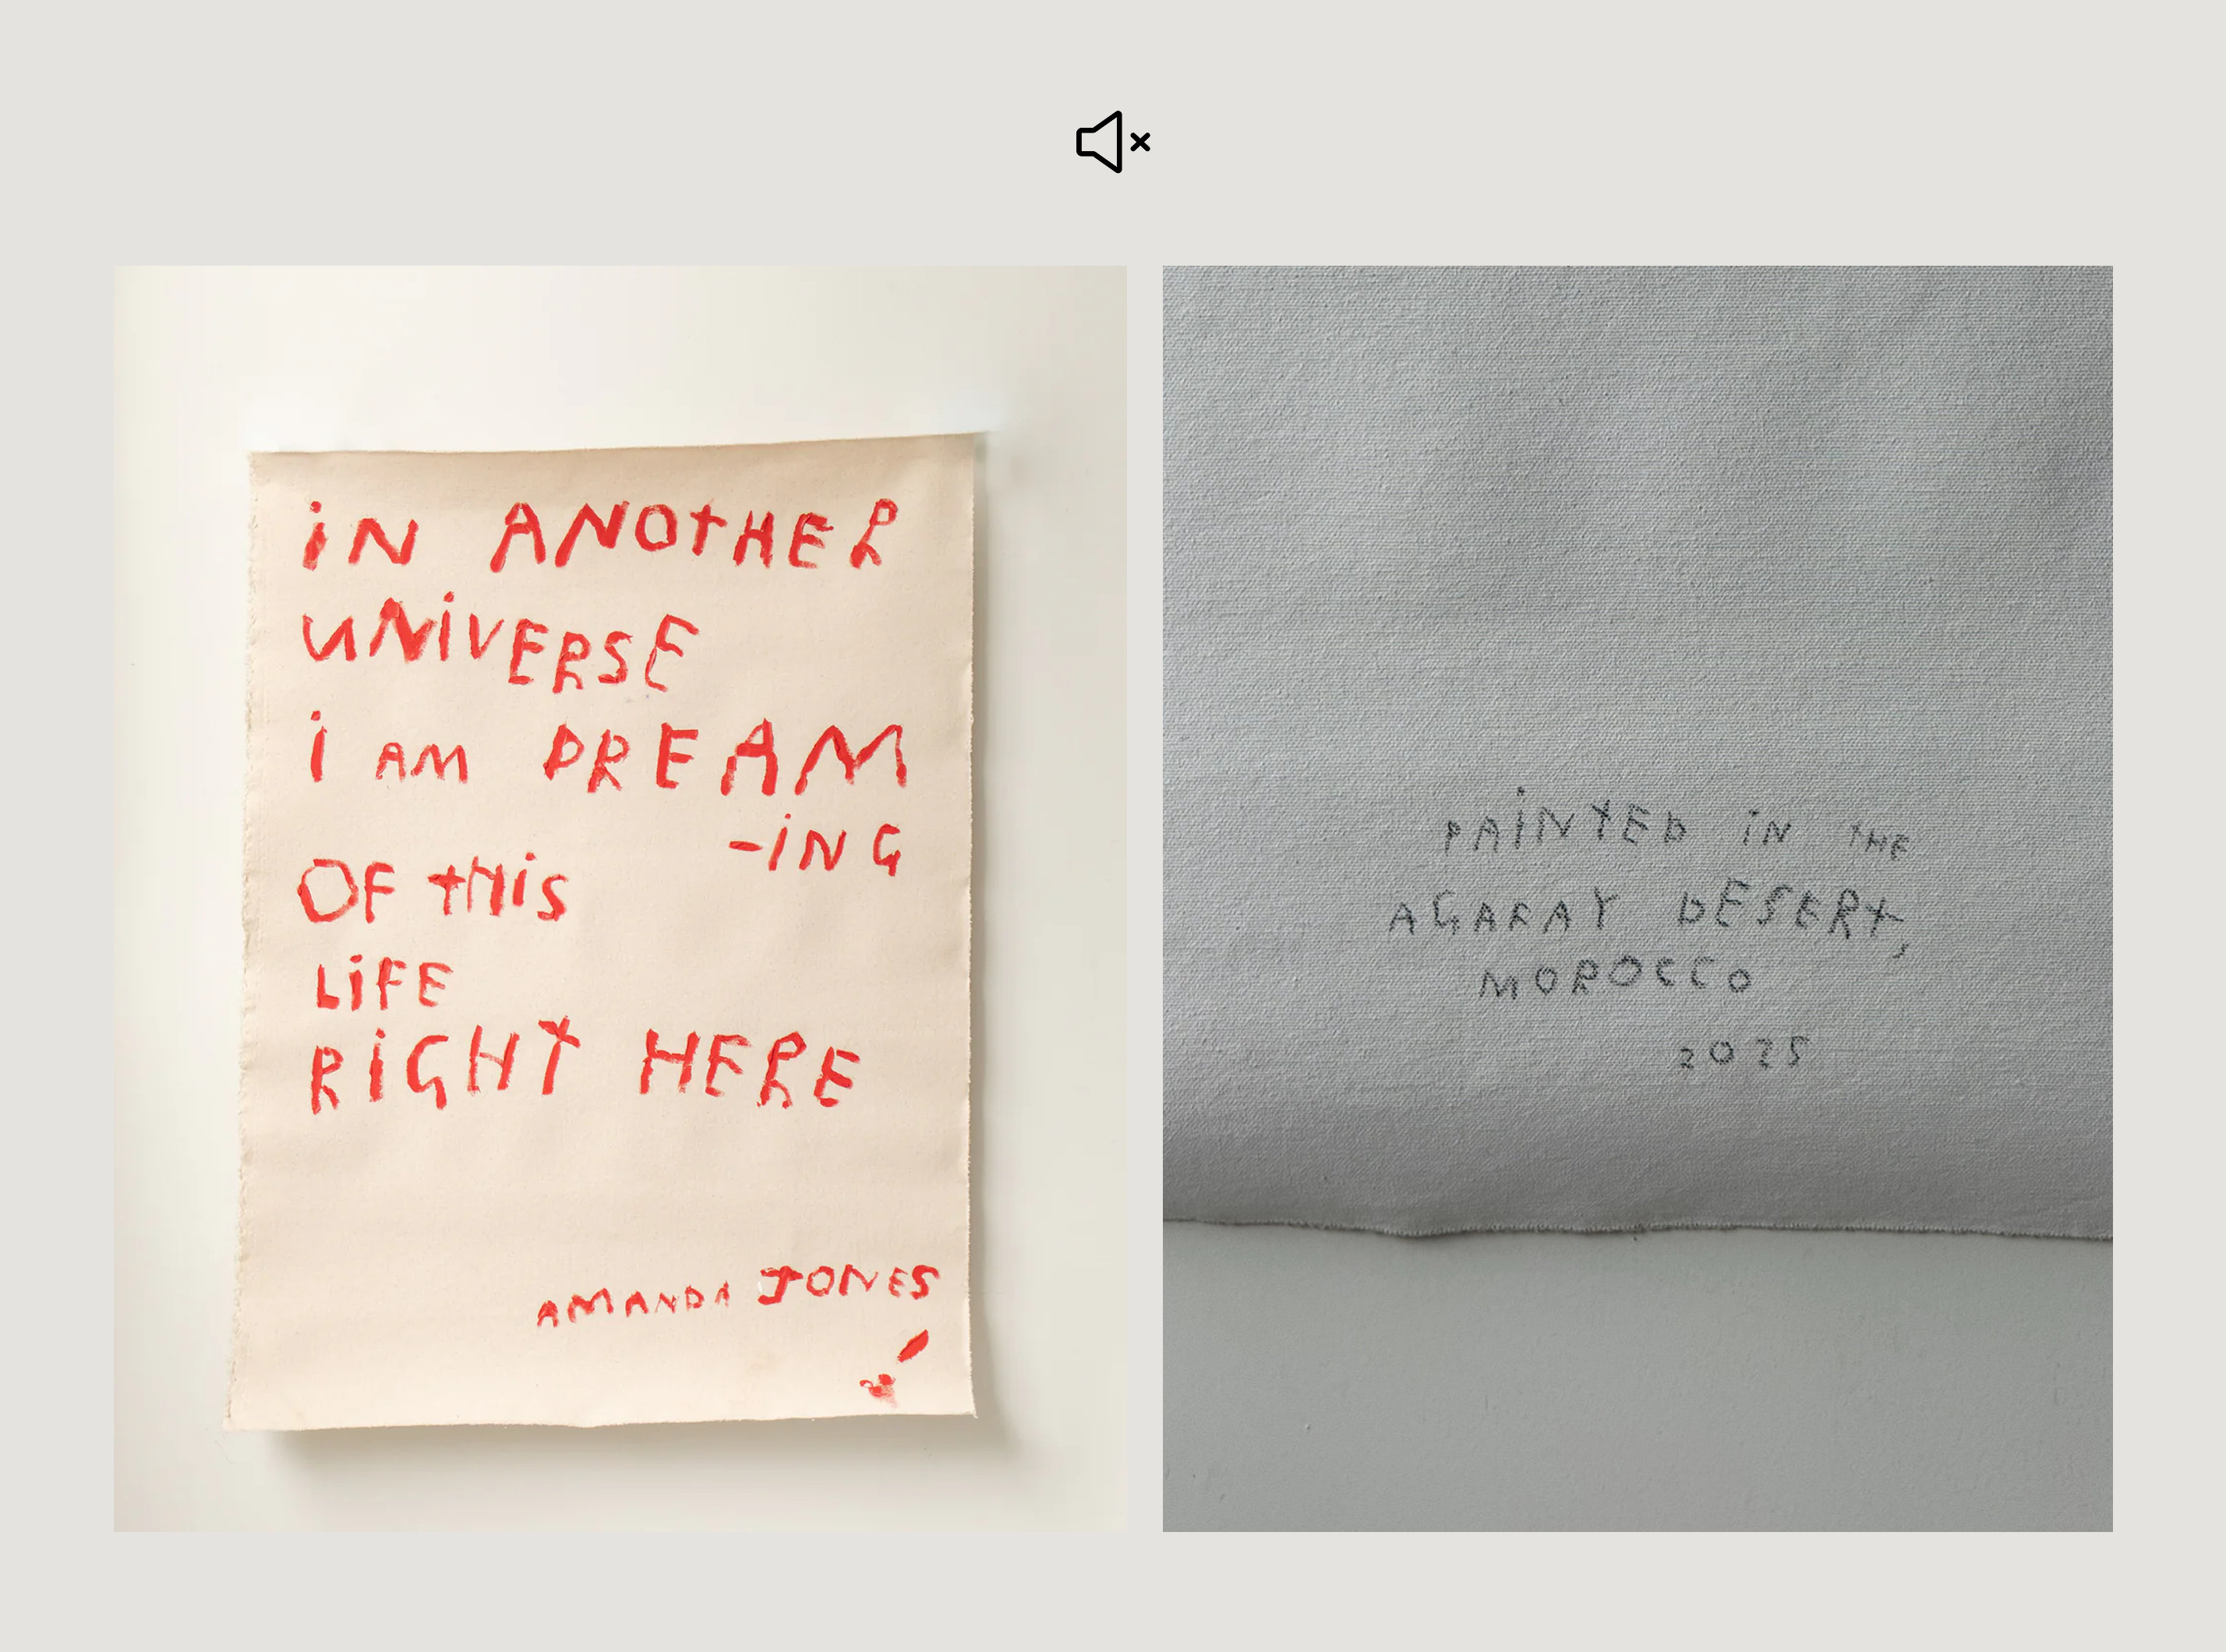 iN ANOtHER
UNiVERSE
i AM DREAM
-iNG
OF tHiS
LiFE
RiGHT HERE
AMANDA JONES
PAiNTED iN THE
AGARAY DESERT,
MOROCCO
2025